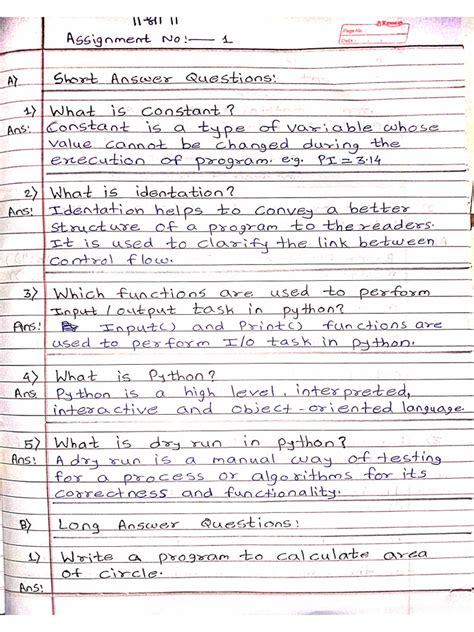 ॥ श्री ॥
Assignment No:— 1
Page No.
Date
A) Short Answer Questions:
1) What is constant?
Ans: Constant is a type of variable whose
value cannot be changed during the
execution of program. e.g. PI = 3.14
2) What is identation?
Ans: Identation helps to convey a better
structure of a program to the readers.
It is used to clarify the link between
control flow.
3) Which functions are used to perform
Input / output task in python?
Ans: Input() and Print() functions are
used to perform I/o task in python.
4) What is Python?
Ans Python is a high level, interpreted,
interactive and object-oriented language
5) What is dry run in python?
Ans: A dry run is a manual way of testing
for a process or algorithms for its
correctness and functionality.
B) Long Answer Questions:
1) Write a program to calculate area
of circle.
Ans: